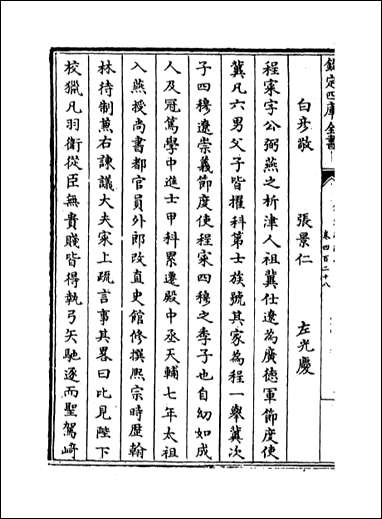 欽定四庫全書
卷四百二十八
白彦敬 張景仁 左光慶
程寀字公弼燕之析津人祖冀仕遼為廣徳軍節度使
冀凡六男父子皆擢科第士族號其家為程一舉冀次
子四穆遼崇義節度使程寀四穆之季子也自幼如成
人及冠篤學中進士甲科累遷殿中丞天輔七年太祖
入燕授尚書都官員外郎改直史館修撰熙宗時歴翰
林待制蒹右諫議大夫寀上疏言事其畧曰比見陛下
校獵凡羽衛從臣無貴賤皆得執弓矢馳逐而聖駕﨑